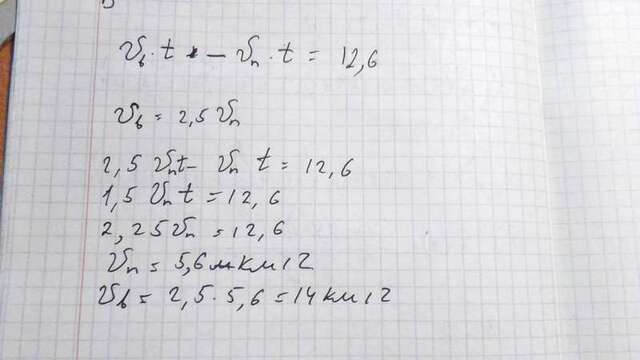 v_в · t - v_п · t = 12,6
v_в = 2,5 v_п
2,5 v_п t - v_п t = 12,6
1,5 v_п t = 12,6
2,25 v_п = 12,6
v_п = 5,6 км/г
v_в = 2,5 · 5,6 = 14 км/г